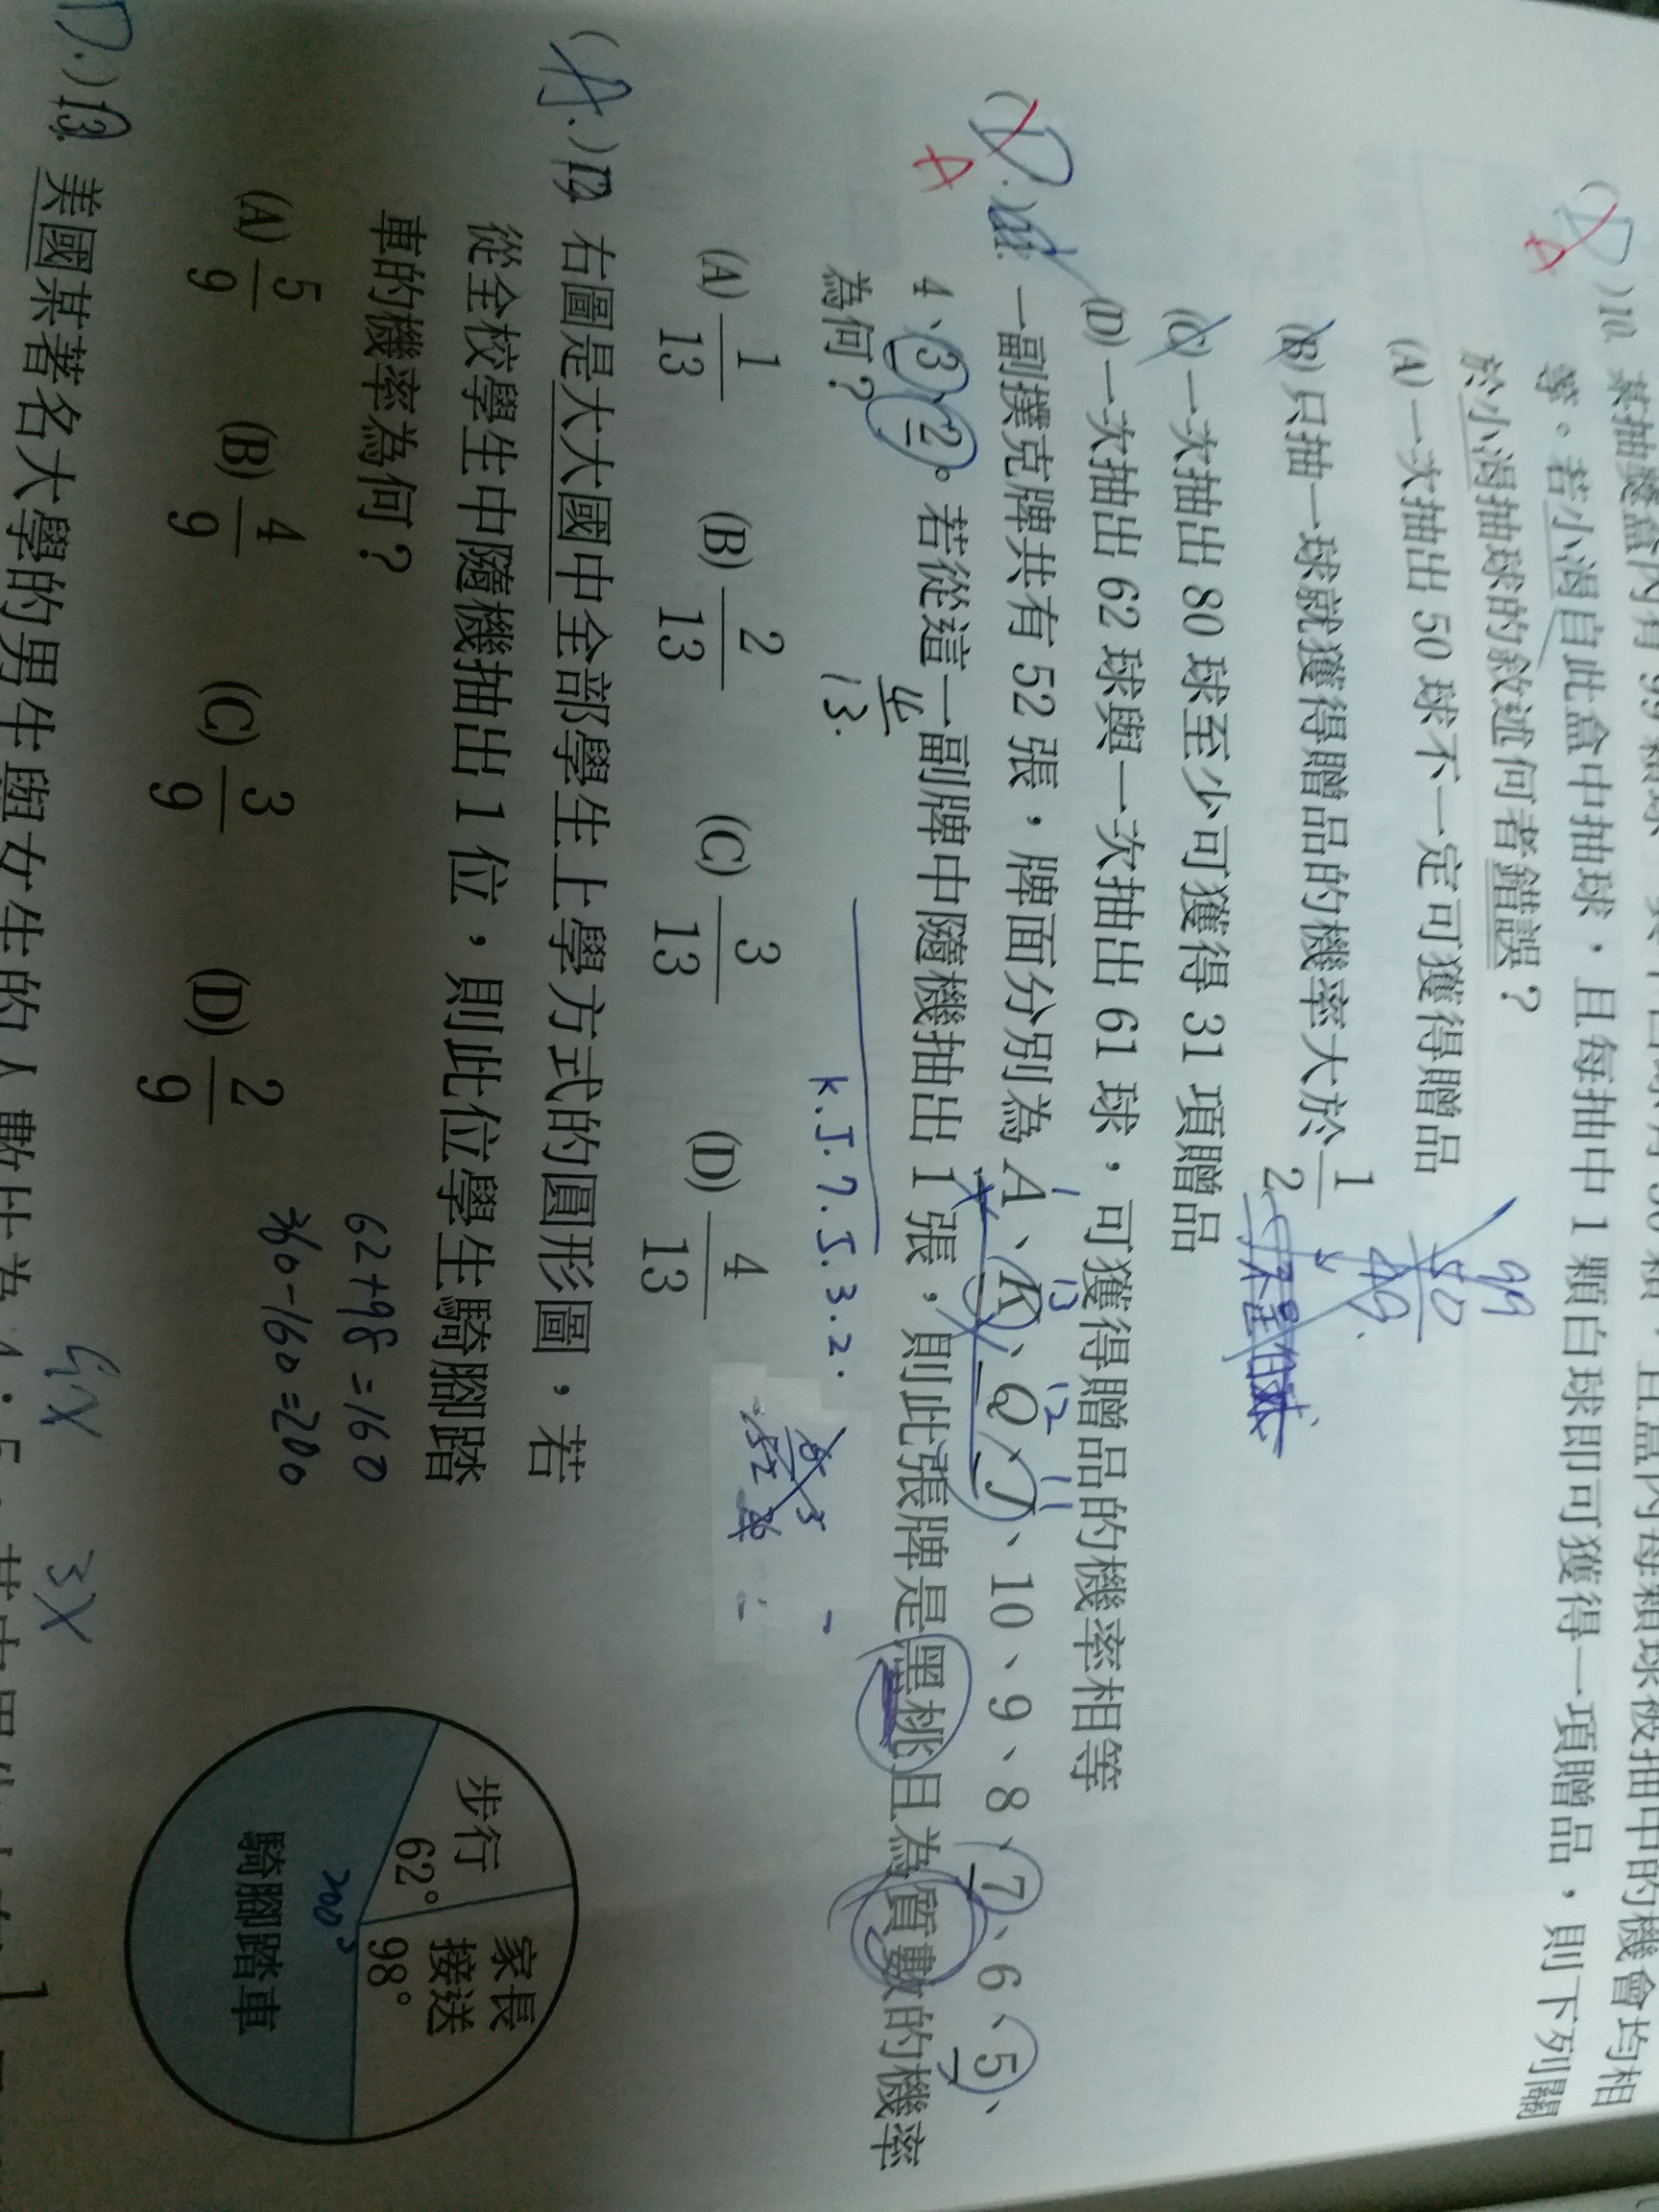 )10. 某抽獎盒內有 99 顆球
等。若小渴自此盒中抽球,且每抽中 1 顆白球即可獲得一項贈品,則下列關
於小渴抽球的敘述何者錯誤?
(A) 一次抽出 50 球不一定可獲得贈品
(B) 只抽一球就獲得贈品的機率大於 1/2
(C) 一次抽出 80 球至少可獲得 31 項贈品
(D) 一次抽出 62 球與一次抽出 61 球,可獲得贈品的機率相等
99
50
49
(D.)
A
一副撲克牌共有 52 張,牌面分別為 A、K、Q、J、10、9、8、7、6、5、
1 13 12 11
4、3、2。若從這一副牌中隨機抽出 1 張,則此張牌是黑桃且為質數的機率
為何?
4/13.
K.J.7.5.3.2.
(A) 1/13 (B) 2/13 (C) 3/13 (D) 4/13
(A.)12. 右圖是大大國中全部學生上學方式的圓形圖,若
從全校學生中隨機抽出 1 位,則此位學生騎腳踏
車的機率為何?
62+98=160
360-160=200
(A) 5/9 (B) 4/9 (C) 3/9 (D) 2/9
步行
62°
家長
接送
98°
200°
騎腳踏車
4X 3X
D.)13. 美國某著名大學的男生與女生的人數比為 4:5